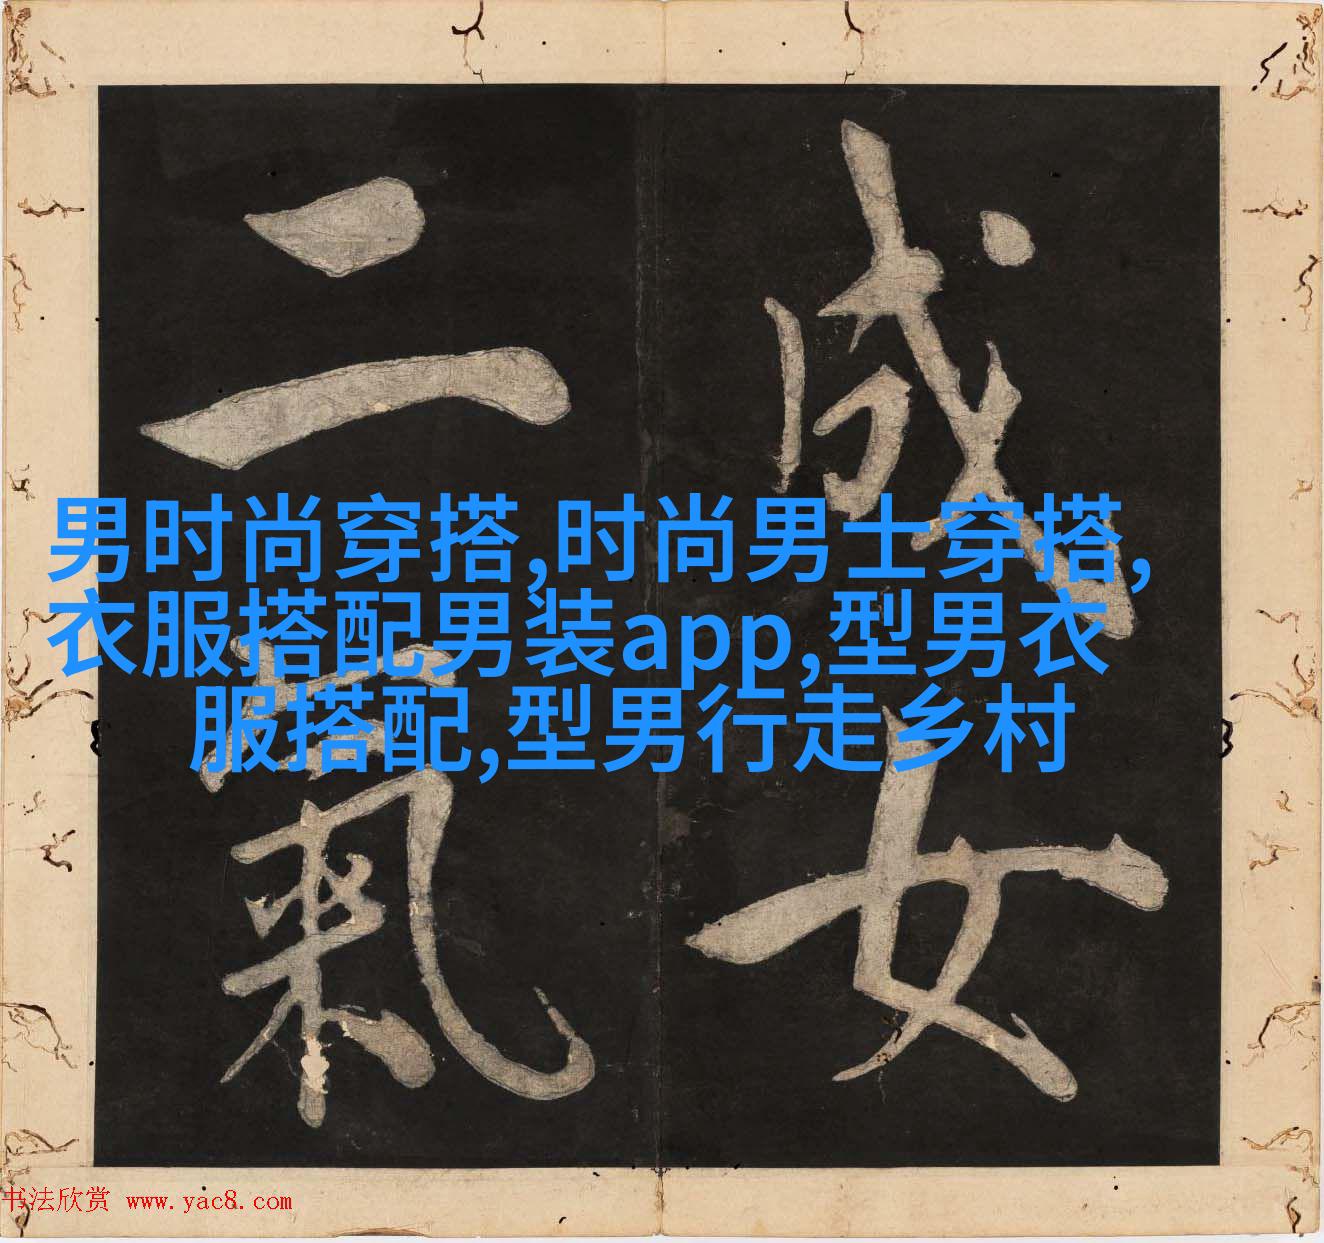 成女
二氣
男时尚穿搭,时尚男士穿搭,
衣服搭配男装app,型男衣
服搭配,型男行走乡村
书法欣赏 www.yac8.com